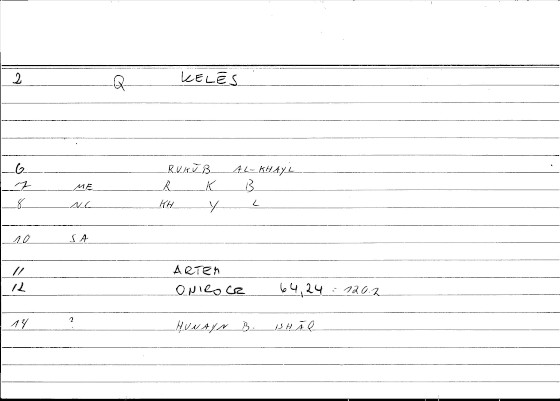 2 Q KELĒS
6 RUKŪB AL-KHAYL
7 ME R K B
8 NC KH Y L
10 SA
11 ARTEM
12 ONIROCR 64,24 = 120.2
14 ? HUNAYN B. ISHĀQ